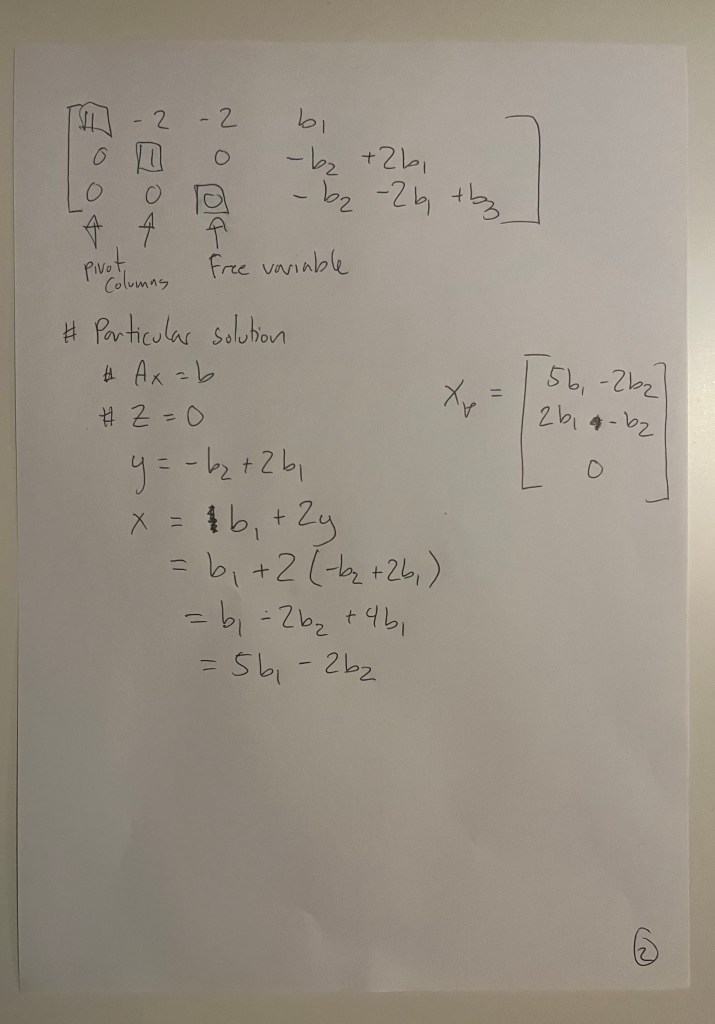 1 -2 -2 b₁
0 1 0 -b₂ +2b₁
0 0 0 -b₂ -2b₁ +b₃
Pivot Columns
Free variable
# Particular solution
# Ax = b
# Z = 0
y = -b₂ + 2b₁
x = b₁ + 2y
= b₁ + 2 (-b₂ +2b₁)
= b₁ - 2b₂ + 4b₁
= 5b₁ - 2b₂
Xₚ =
5b₁ -2b₂
2b₁ - b₂
0
2